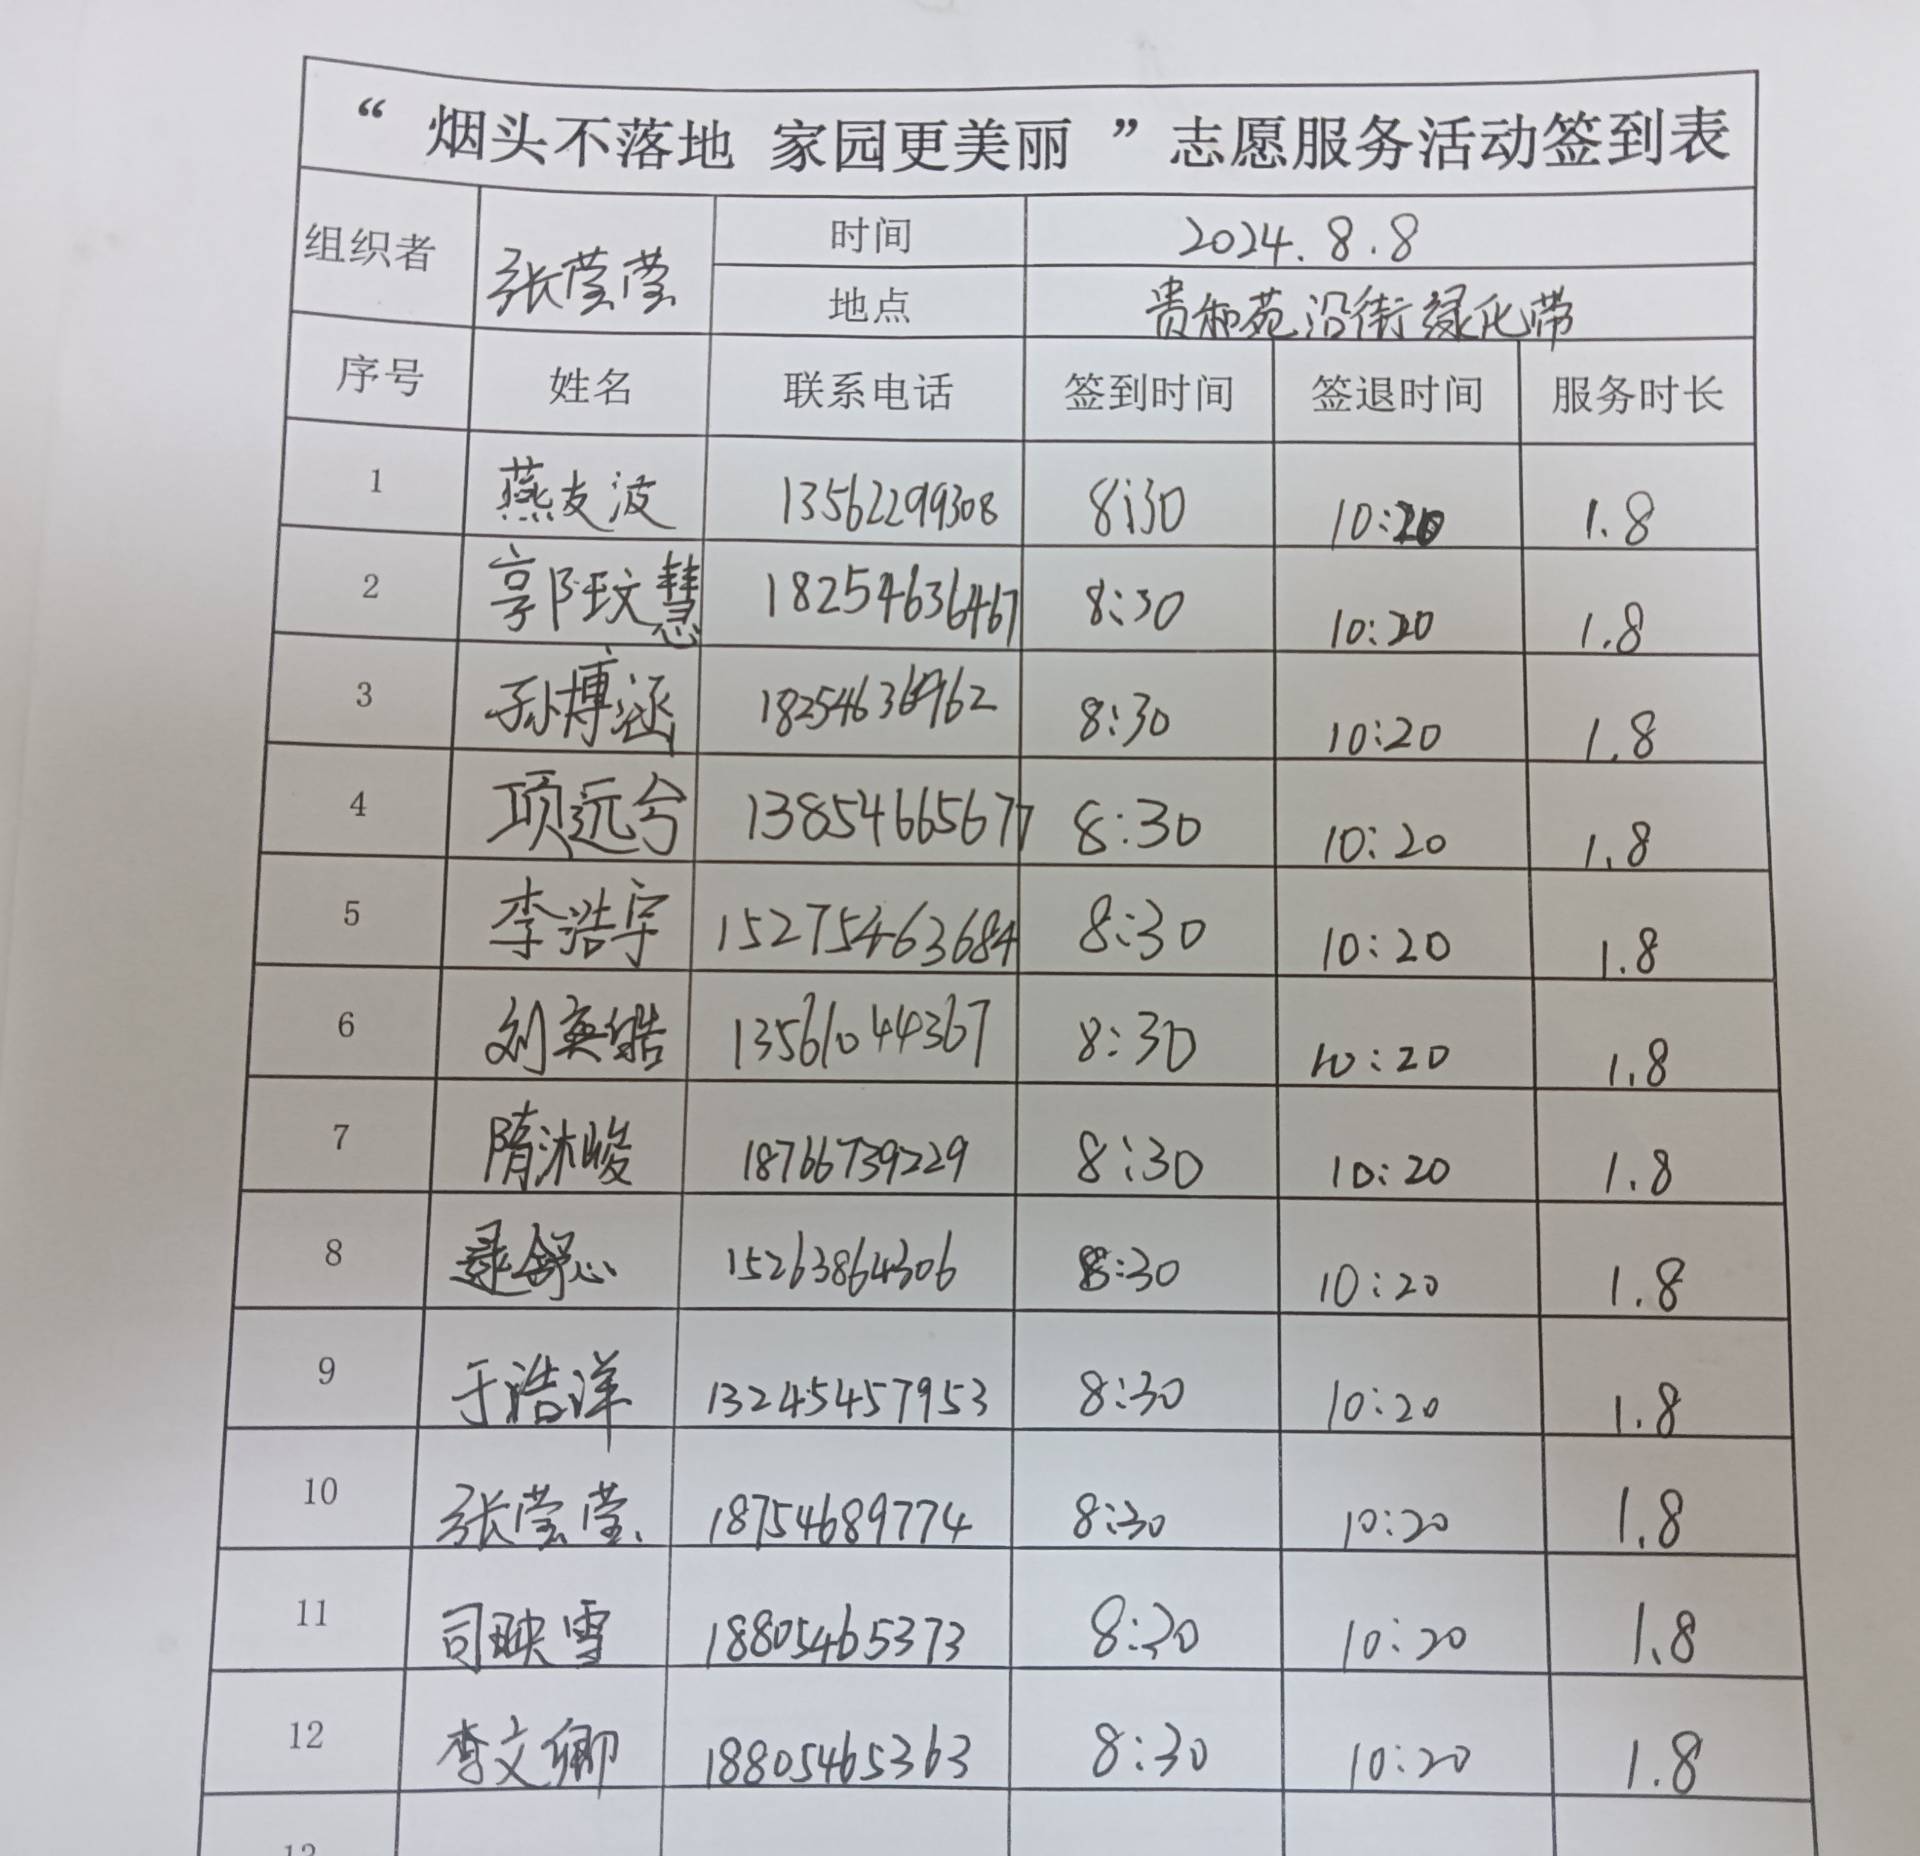 “ 烟头不落地 家园更美丽 ”志愿服务活动签到表
组织者 张莹莹 时间 2024.8.8
地点 贵和苑沿街绿化带
序号 姓名 联系电话 签到时间 签退时间 服务时长
1 燕友波 13562299308 8:30 10:20 1.8
2 郭玟慧 18254636467 8:30 10:20 1.8
3 孙博涵 18254636962 8:30 10:20 1.8
4 项远兮 13854665677 8:30 10:20 1.8
5 李浩宇 15275463684 8:30 10:20 1.8
6 刘英皓 13561044367 8:30 10:20 1.8
7 隋沐峻 18766739229 8:30 10:20 1.8
8 舒心 15263864306 8:30 10:20 1.8
9 于浩洋 13245457953 8:30 10:20 1.8
10 张莹莹 18754689774 8:30 10:20 1.8
11 司映雪 18805465373 8:30 10:20 1.8
12 李文卿 18805465363 8:30 10:20 1.8